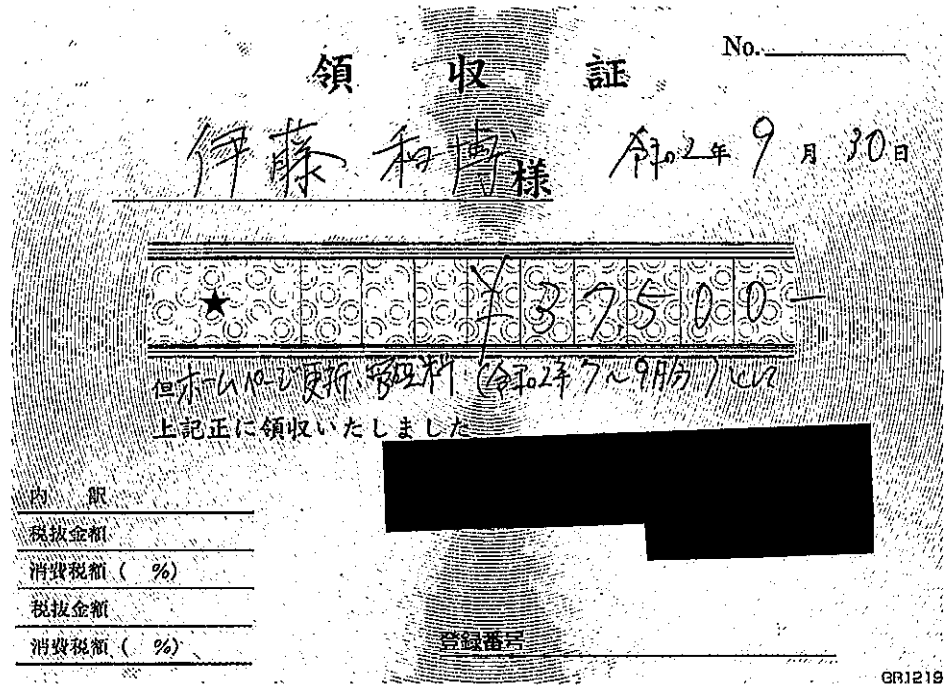 No.
領収証
伊藤 和博 様
令和2年 9月 30日
★ ¥37,500-
但ホームページ更新、管理料(令和2年7~9月分)として
上記正に領収いたしました
内訳
税抜金額
消費税額( %)
税抜金額
消費税額( %)
登録番号
GR1219